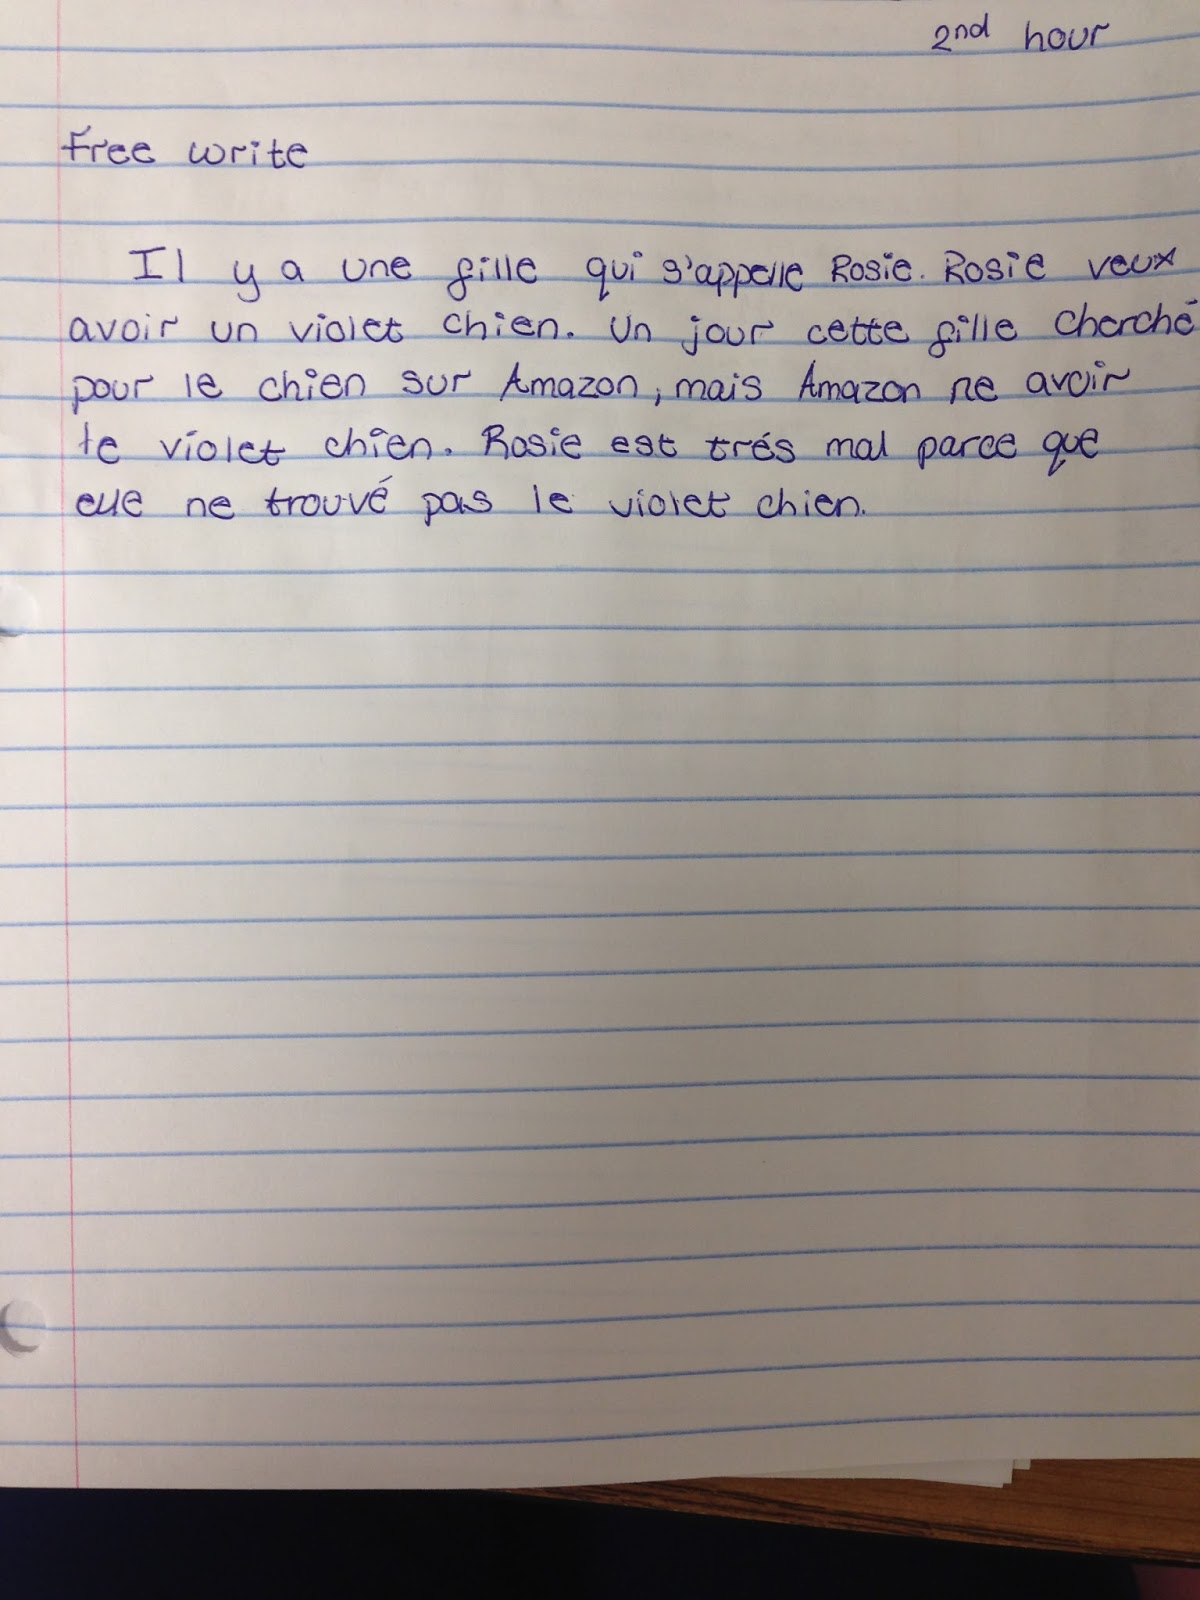 2nd hour
Free write
Il y a une fille qui s'appelle Rosie. Rosie veux
avoir un violet chien. Un jour cette fille cherché
pour le chien sur Amazon, mais Amazon ne avoir
le violet chien. Rosie est trés mal parce que
elle ne trouvé pas le violet chien.